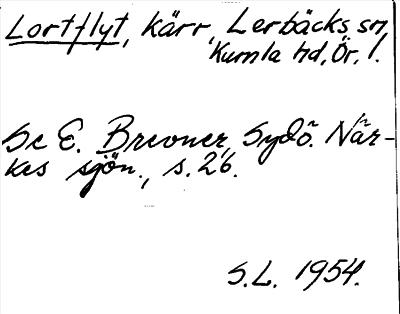 Lortflyt, kärr, Lerbäcks sn,
Kumla hd, Ör. l.
Se E. Brevner, Sydö. När-
kes sjön., s. 26.
S.L. 1954.